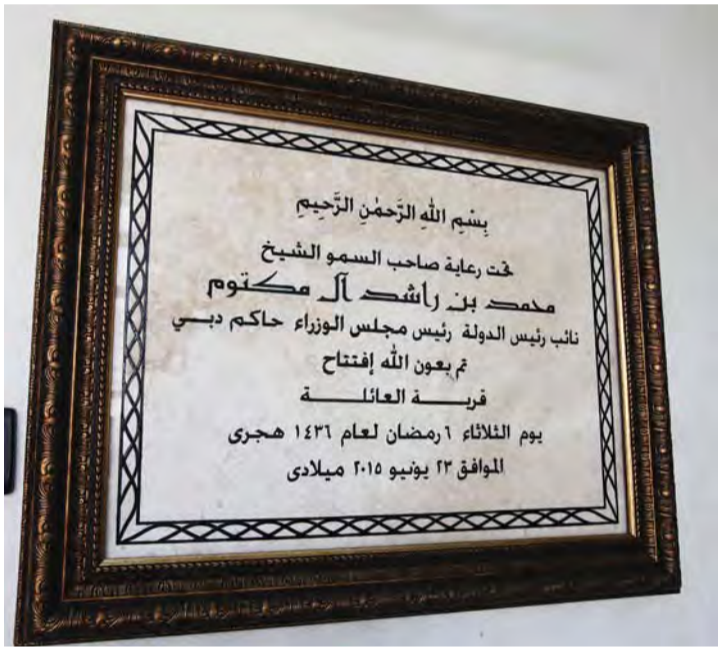 بِسْمِ اللهِ الرَّحمٰنِ الرَّحِيمِ
تحت رعاية صاحب السمو الشيخ
محمد بن راشد آل مكتوم
نائب رئيس الدولة رئيس مجلس الوزراء حاكم دبي
تم بعون الله إفتتاح
قريـــة العائلـــة
يوم الثلاثاء ٦ رمضان لعام ١٤٣٦ هجرى
الموافق ٢٣ يونيو ٢٠١٥ ميلادى